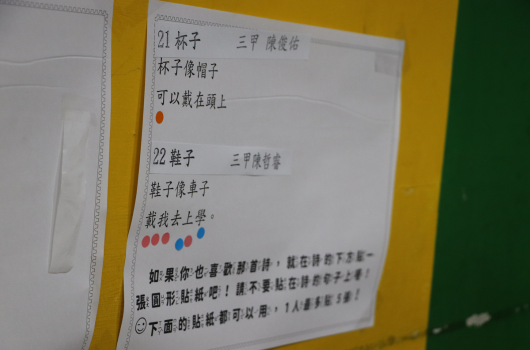 21 杯子 三甲 陳俊佑
杯子像帽子
可以戴在頭上
22 鞋子 三甲陳哲睿
鞋子像車子
載我去上學。
如果你也喜歡那首詩，就在詩的下方貼一
張圓形貼紙吧！請不要貼在詩的句子上喔！
☺下面的貼紙都可以用，1人最多貼5張！